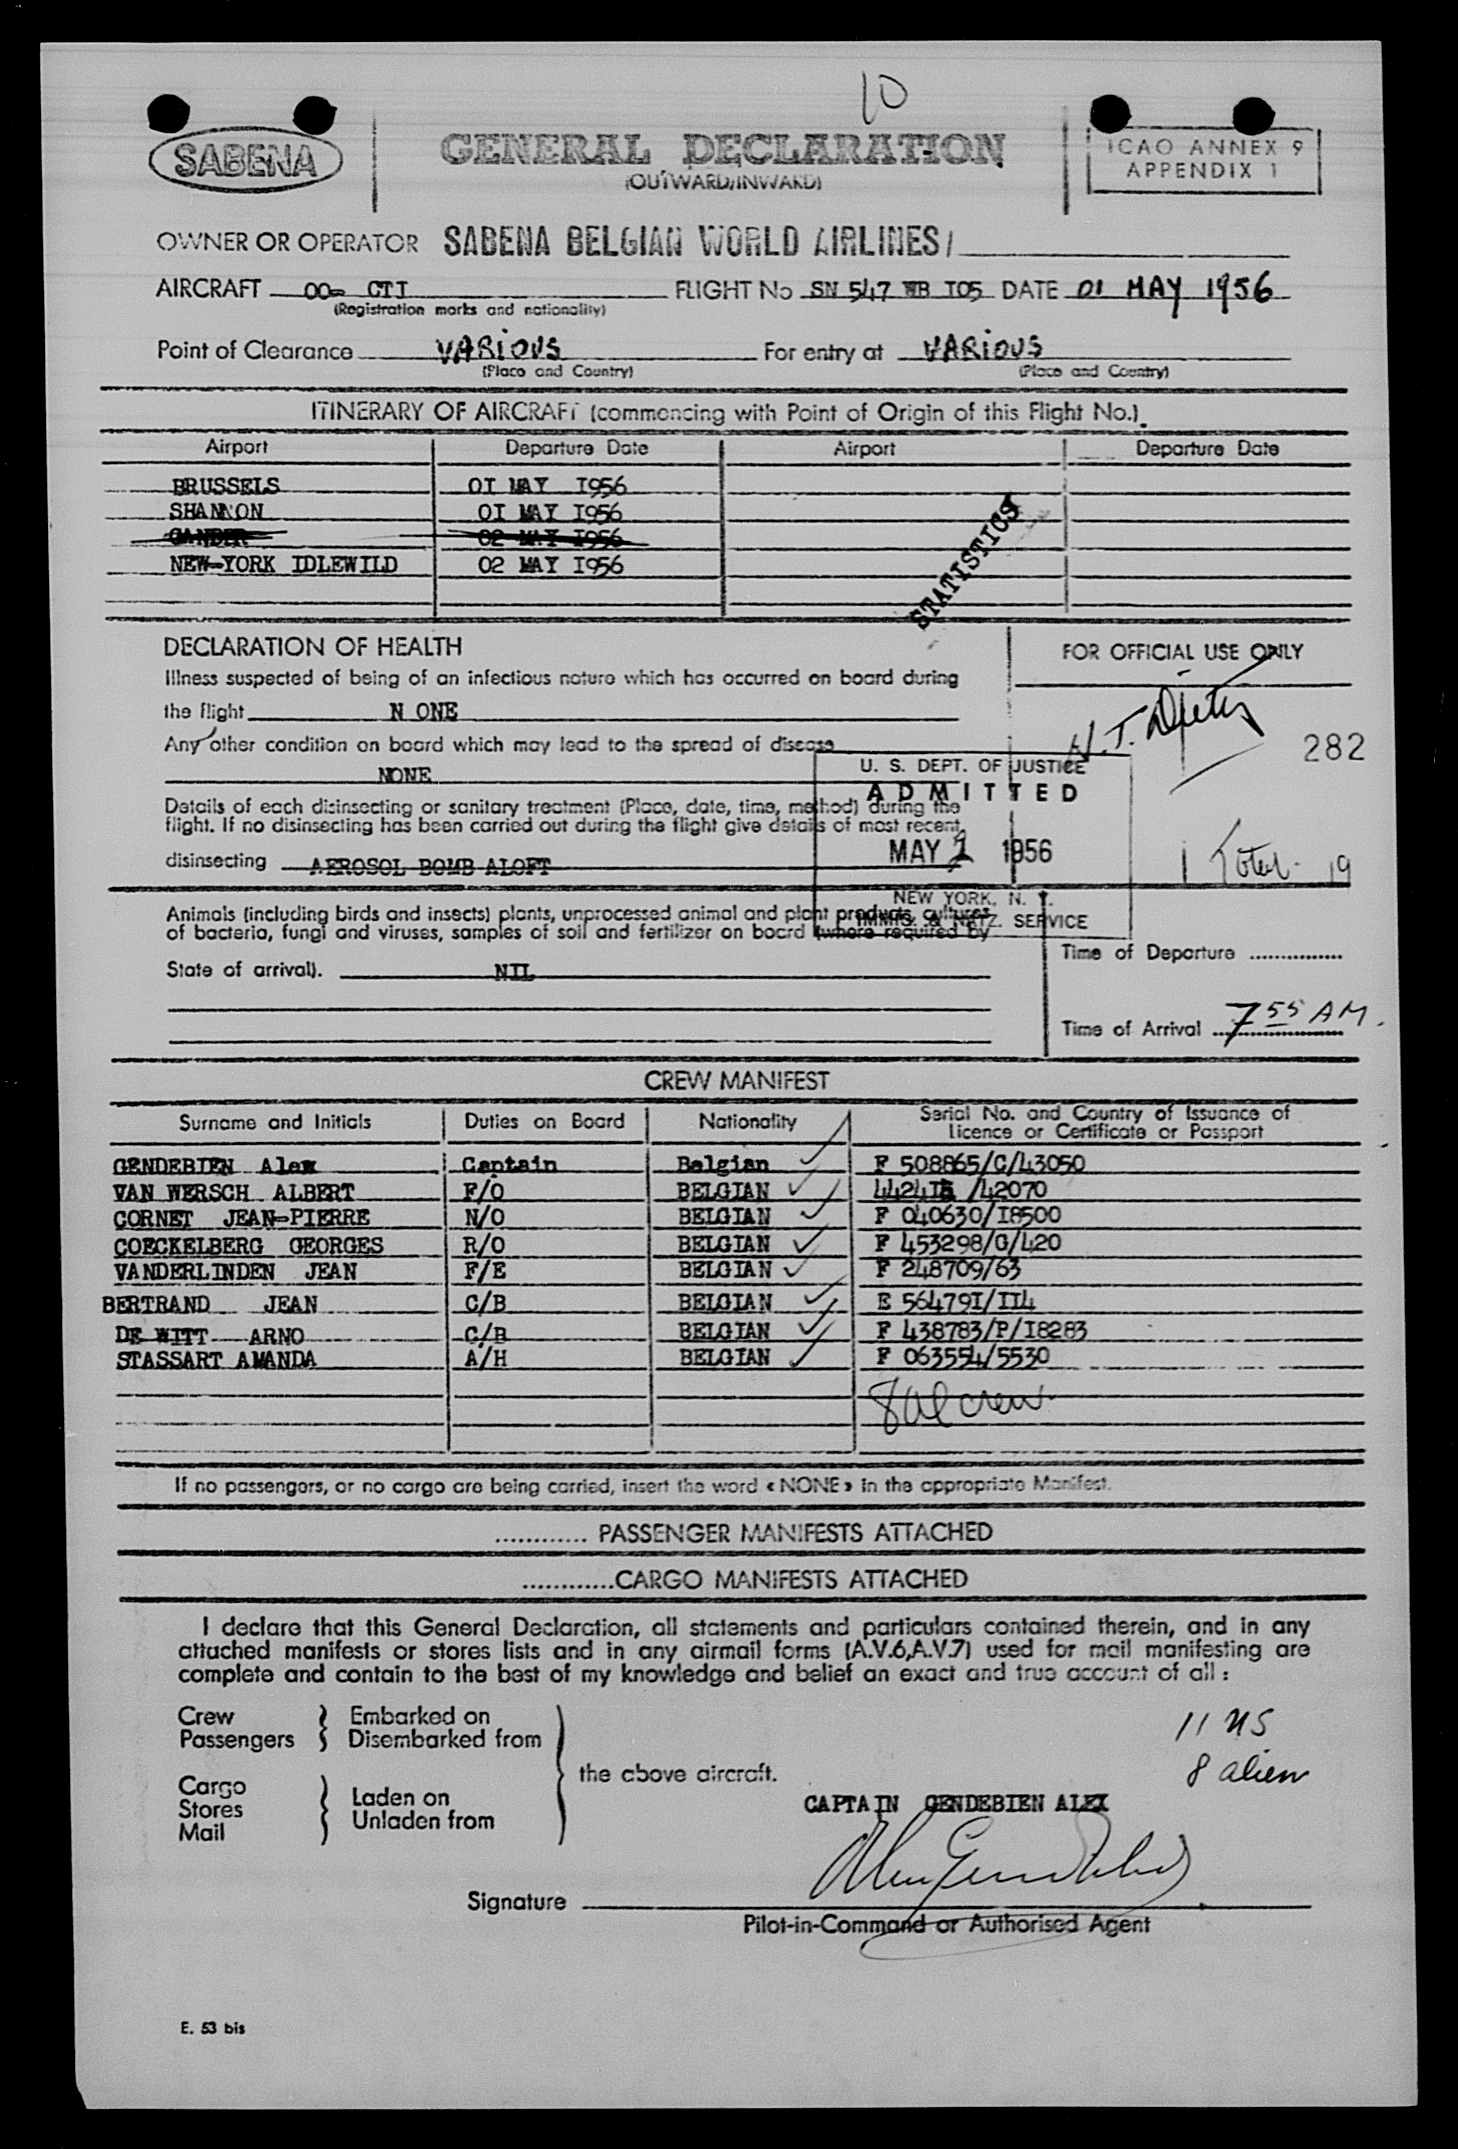 10
SABENA
GENERAL DECLARATION
(OUTWARD/INWARD)
ICAO ANNEX 9
APPENDIX 1
OWNER OR OPERATOR SABENA BELGIAN WORLD AIRLINES/
AIRCRAFT OO- CTJ FLIGHT No SN 547 WB I05 DATE 01 MAY 1956
(Registration marks and nationality)
Point of Clearance VARIOUS For entry at VARIOUS
(Place and Country) (Place and Country)
ITINERARY OF AIRCRAFT (commencing with Point of Origin of this Flight No.)
Airport Departure Date Airport Departure Date
BRUSSELS OI MAY I956
SHANNON OI MAY I956
GANDER 02 MAY I956
NEW-YORK IDLEWILD 02 MAY I956
STATISTICS
DECLARATION OF HEALTH
FOR OFFICIAL USE ONLY
Illness suspected of being of an infectious nature which has occurred on board during
the flight N ONE
Any other condition on board which may lead to the spread of disease
NONE
282
U. S. DEPT. OF JUSTICE
ADMITTED
MAY 2 1956
NEW YORK, N. Y.
IMMIG. & NATZ. SERVICE
Details of each disinsecting or sanitary treatment (Place, date, time, method) during the
flight. If no disinsecting has been carried out during the flight give details of most recent
disinsecting AEROSOL BOMB ALOFT
19
Animals (including birds and insects) plants, unprocessed animal and plant products, cultures
of bacteria, fungi and viruses, samples of soil and fertilizer on board (where required by
State of arrival). NIL
Time of Departure ................
Time of Arrival 7 55 AM.
CREW MANIFEST
Surname and Initials Duties on Board Nationality Serial No. and Country of Issuance of
Licence or Certificate or Passport
GENDEBIEN Alex Captain Belgian F 508865/C/43050
VAN WERSCH ALBERT F/O BELGIAN /42070
CORNET JEAN-PIERRE N/O BELGIAN F 040630/I8500
COECKELBERG GEORGES R/O BELGIAN F 453298/G/420
VANDERLINDEN JEAN F/E BELGIAN F 248709/63
BERTRAND JEAN C/B BELGIAN E 56479I/II4
DE WITT ARNO C/B BELGIAN F 438783/P/I8283
STASSART AMANDA A/H BELGIAN F 063554/5530
8 al crew
If no passengers, or no cargo are being carried, insert the word « NONE » in the appropriate Manifest.
............ PASSENGER MANIFESTS ATTACHED
.............CARGO MANIFESTS ATTACHED
I declare that this General Declaration, all statements and particulars contained therein, and in any
attached manifests or stores lists and in any airmail forms (A.V.6,A.V.7) used for mail manifesting are
complete and contain to the best of my knowledge and belief an exact and true account of all :
Crew Embarked on
Passengers Disembarked from
the above aircraft.
Cargo Laden on
Stores Unladen from
Mail
11 US
8 alien
CAPTAIN GENDEBIEN ALEX
Signature
Pilot-in-Command or Authorised Agent
E. 53 bis